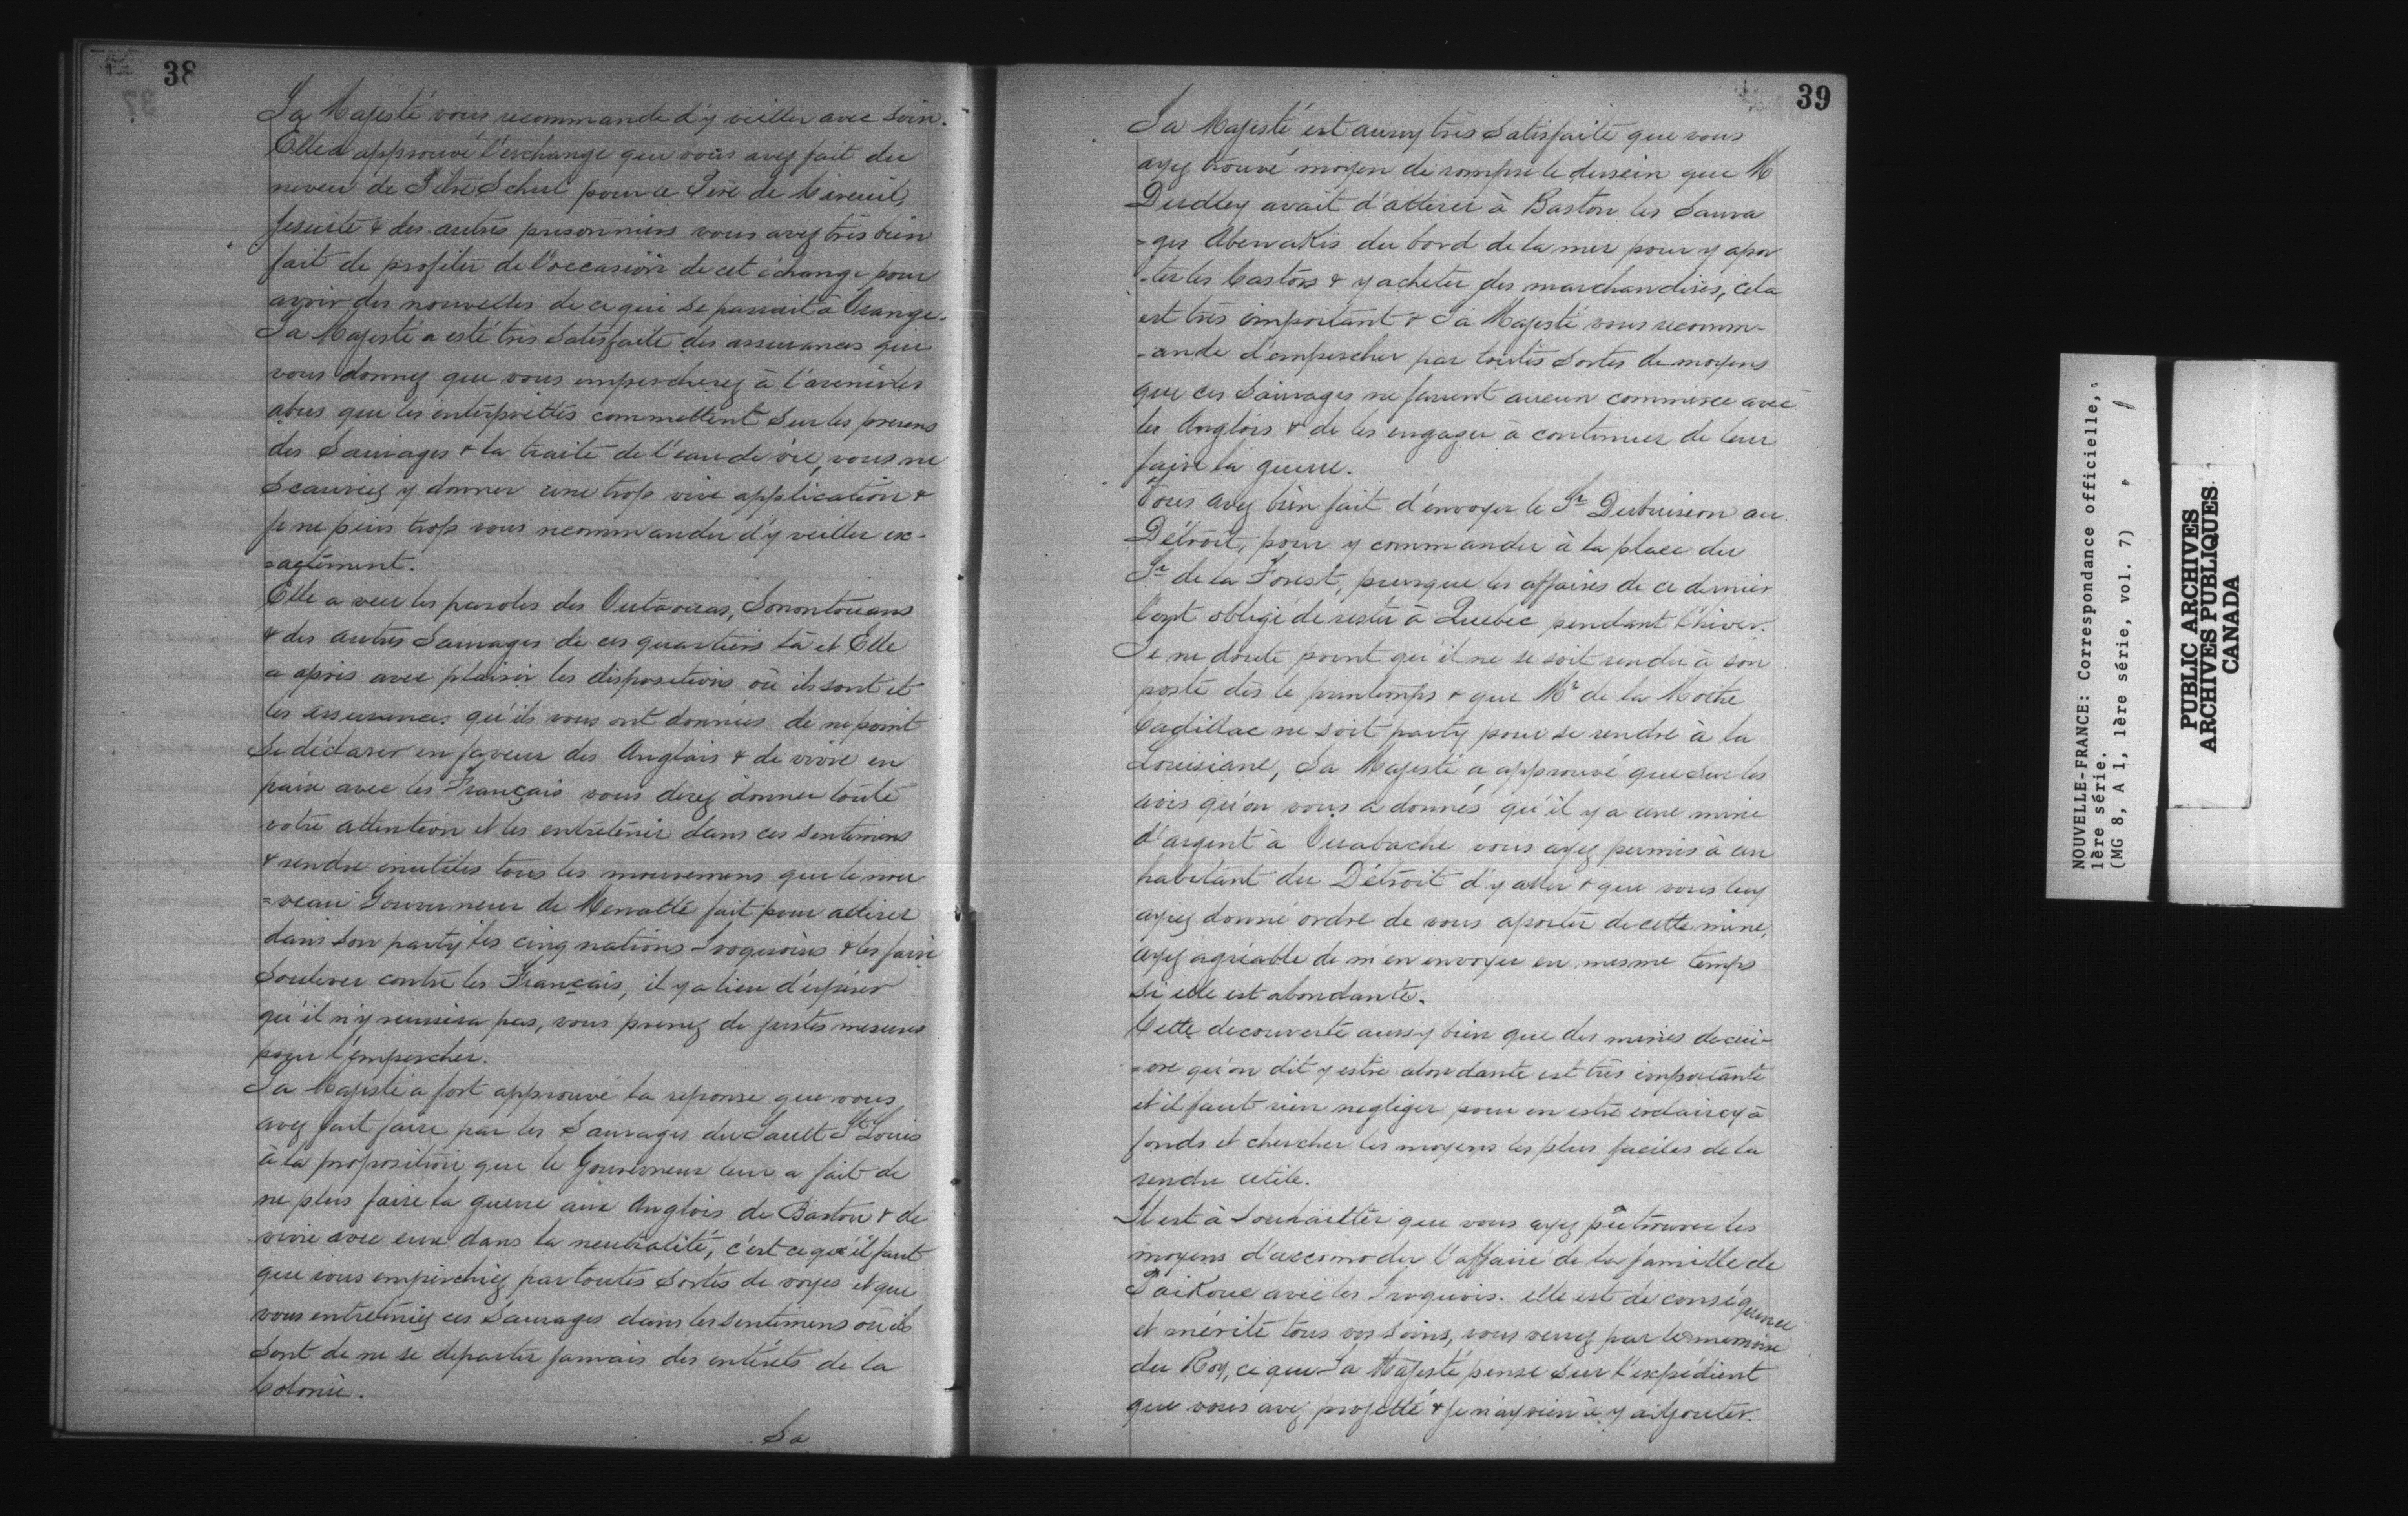 38
Sa Majesté vous recommande d'y veiller avec soin.
Elle a approuvé l'eschange que vous avez fait du
neveu de Pitre Schul pour le Père de Mareuil,
Jesuite & des autres prisonniers vous avez très bien
fait de profiter de l'occasion de cet échange pour
avoir des nouvelles de ce qui se passait à Orange.
Sa Majesté a esté très satisfaite des assurances que
vous donnez que vous empescherez à l'avenir les
abus que les interprettes commettent sur les presens
des Sauvages & la traite de l'eau de vie, vous ne
scauriez y donner une trop vive application &
je ne puis trop vous recommander d'y veiller ex-
=actement.
Elle a veu les paroles des Outavoiias, Sonontouans
& des autres Sauvages de ces quartiers là et Elle
a apris avec plaisir les dispositions où ils sont et
les assurances qu'ils vous ont données de ne point
se déclarer en faveur des Anglais & de vivre en
paix avec les Français vous devez donner toute
votre attention et les entretenir dans ces sentimens
& rendre inutiles tous les mouvemens que le nou
=veau Gouverneur de Menatte fait pour attirer
dans son party les cinq nations Iroquoises & les faire
soulever contre les Français, il y a lieu d'espérer
qu'il n'y reussira pas, vous prenez de justes mesures
pour l'empescher.
Sa Majesté a fort approuvé la reponse que vous
avez fait faire par les Sauvages du Sault St Louis
à la proposition que le Gouverneur leur a fait de
ne plus faire la guerre aux Anglois de Baston & de
vivre avec eux dans la neutralité, c'est ce qu'il faut
que vous empeschiez par toutes sortes de voyes et que
vous entreteniez ces Sauvages dans les sentimens où ils
sont de ne se departir jamais des intérêts de la
Colonie.
Sa
39
Sa Majesté est aussy très satisfaite que vous
ayez trouvé moyen de rompre le dessein que M
Dudley avait d'attirer à Baston les Sauva
=ges Abenakis du bord de la mer pour y apor
-ter les Castors & y acheter des marchandises, cela
est très important & Sa Majesté vous recomm-
-ande d'empescher par toutes sortes de moyens
que ces Sauvages ne fassent aucun commerce avec
les Anglois & de les engager à continuer de leur
faire la guerre.
Vous avez bien fait d'envoyer le Sr Dubuisson au
Détroit, pour y commander à la place du
Sr de la Forest, puisque les affaires de ce dernier
l'ont obligé de rester à Quebec pendant l'hiver.
Je ne doute point qu'il ne se soit rendu à son
poste dès le printemps & que Mr de la Mothe
Cadillac ne soit party pour se rendre à la
Louisiane, Sa Majesté a approuvé que sur les
avis qu'on vous a donnés qu'il y a une mine
d'argent à Ouabache vous ayez permis à un
habitant du Détroit d'y aller & que vous luy
ayiez donné ordre de vous aporter de cette mine,
ayez agréable de m'en envoyer en mesme temps
si elle est abondante.
Cette decouverte aussy bien que des mines de cui-
=vre qu'on dit y estre abondante est très importante
et il faut rien negliger pour en estre esclaircy à
fonds et chercher les moyens les plus faciles de la
rendre utile.
Il est à souhaitter que vous ayez pû trouver les
moyens d'accomoder l'affaire de la famille de
Paikoue avec les Iroquois. elle est de conséquence
et mérite tous vos soins, vous verrez par le memoire
du Roy, ce que Sa Majesté pense sur l'expédient
que vous avez projetté & je n'ay rien à y adjouter.
NOUVELLE-FRANCE: Correspondance officielle,
1ère série.
(MG 8, A 1, 1ère série, vol. 7)
PUBLIC ARCHIVES
ARCHIVES PUBLIQUES
CANADA